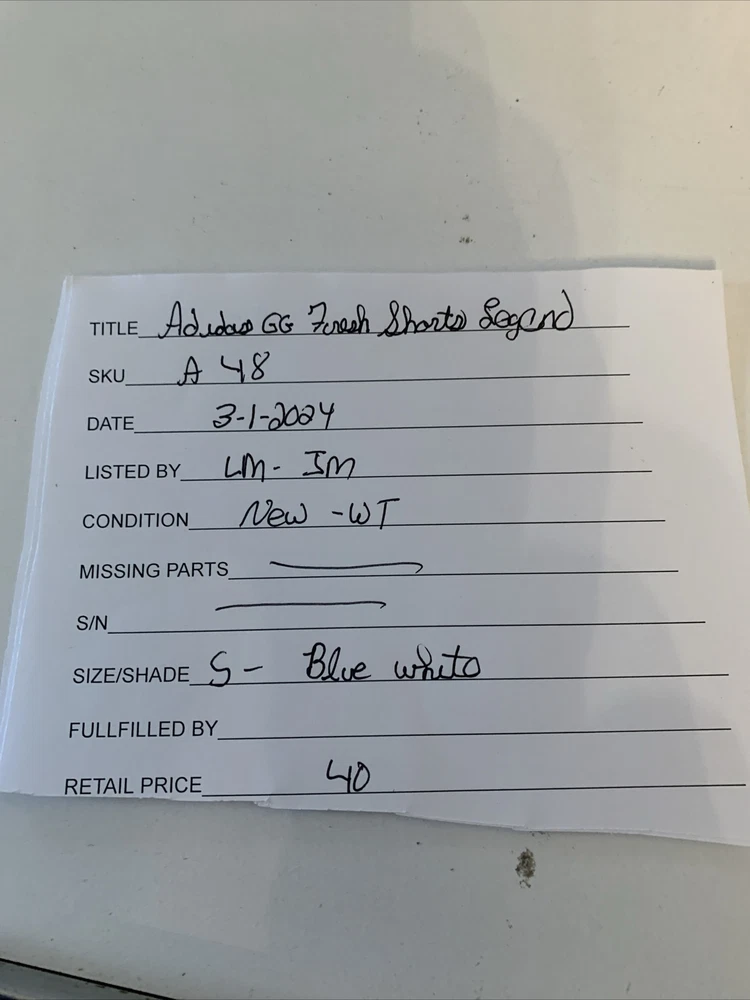 TITLE Adidas GG Fresh Shorts Legend
SKU A 48
DATE 3-1-2024
LISTED BY LM- IM
CONDITION New -WT
MISSING PARTS
S/N
SIZE/SHADE S- Blue white
FULLFILLED BY
RETAIL PRICE 40